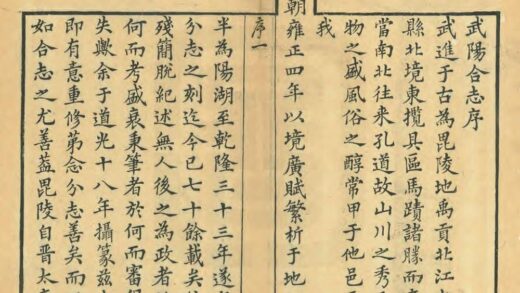 武陽合志序
武進于古為毘陵地禹貢北江
縣北境東攬具區馬蹟諸勝而
當南北往來孔道故山川之秀
物之盛風俗之醇常甲于他邑
我
朝雍正四年以境廣賦繁析于地
序一
半為陽湖至乾隆三十三年遂
分志之刻迄今已七十餘載矣
殘簡脫紀述無人後之為政者
何而考盛衰秉筆者於何而審
失歟余于道光十八年攝篆茲
即有意重修第念分志善矣而
如合志之尤善葢毘陵自晉太